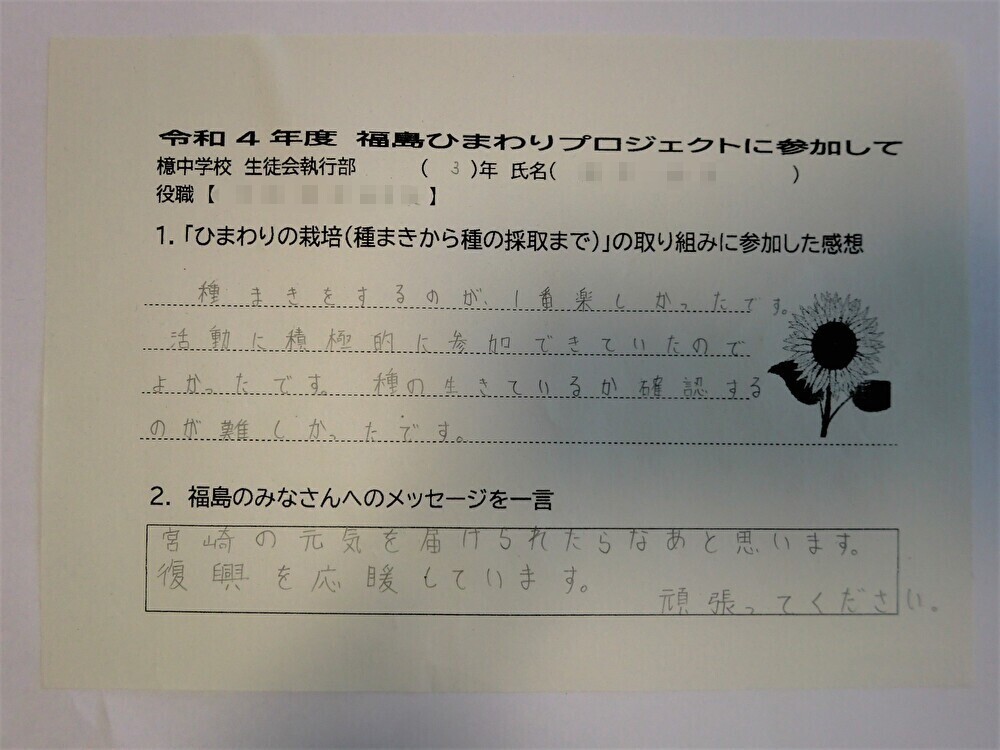 令和4年度 福島ひまわりプロジェクトに参加して
檍中学校 生徒会執行部 ( 3 )年 氏名( )
役職【 】
1.「ひまわりの栽培(種まきから種の採取まで)」の取り組みに参加した感想
種まきをするのが、1番楽しかったです。
活動に積極的に参加できていたので
よかったです。種の生きているか確認する
のが難しかったです。
2. 福島のみなさんへのメッセージを一言
宮崎の元気を届けられたらなあと思います。
復興を応暖しています。
頑張ってください。